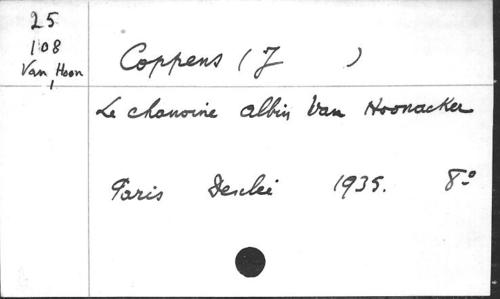 25
108
Van Hoon
1
Coppens (J )
Le chanoine Albin Van Hoonacker
Paris Desclée 1935. 8°